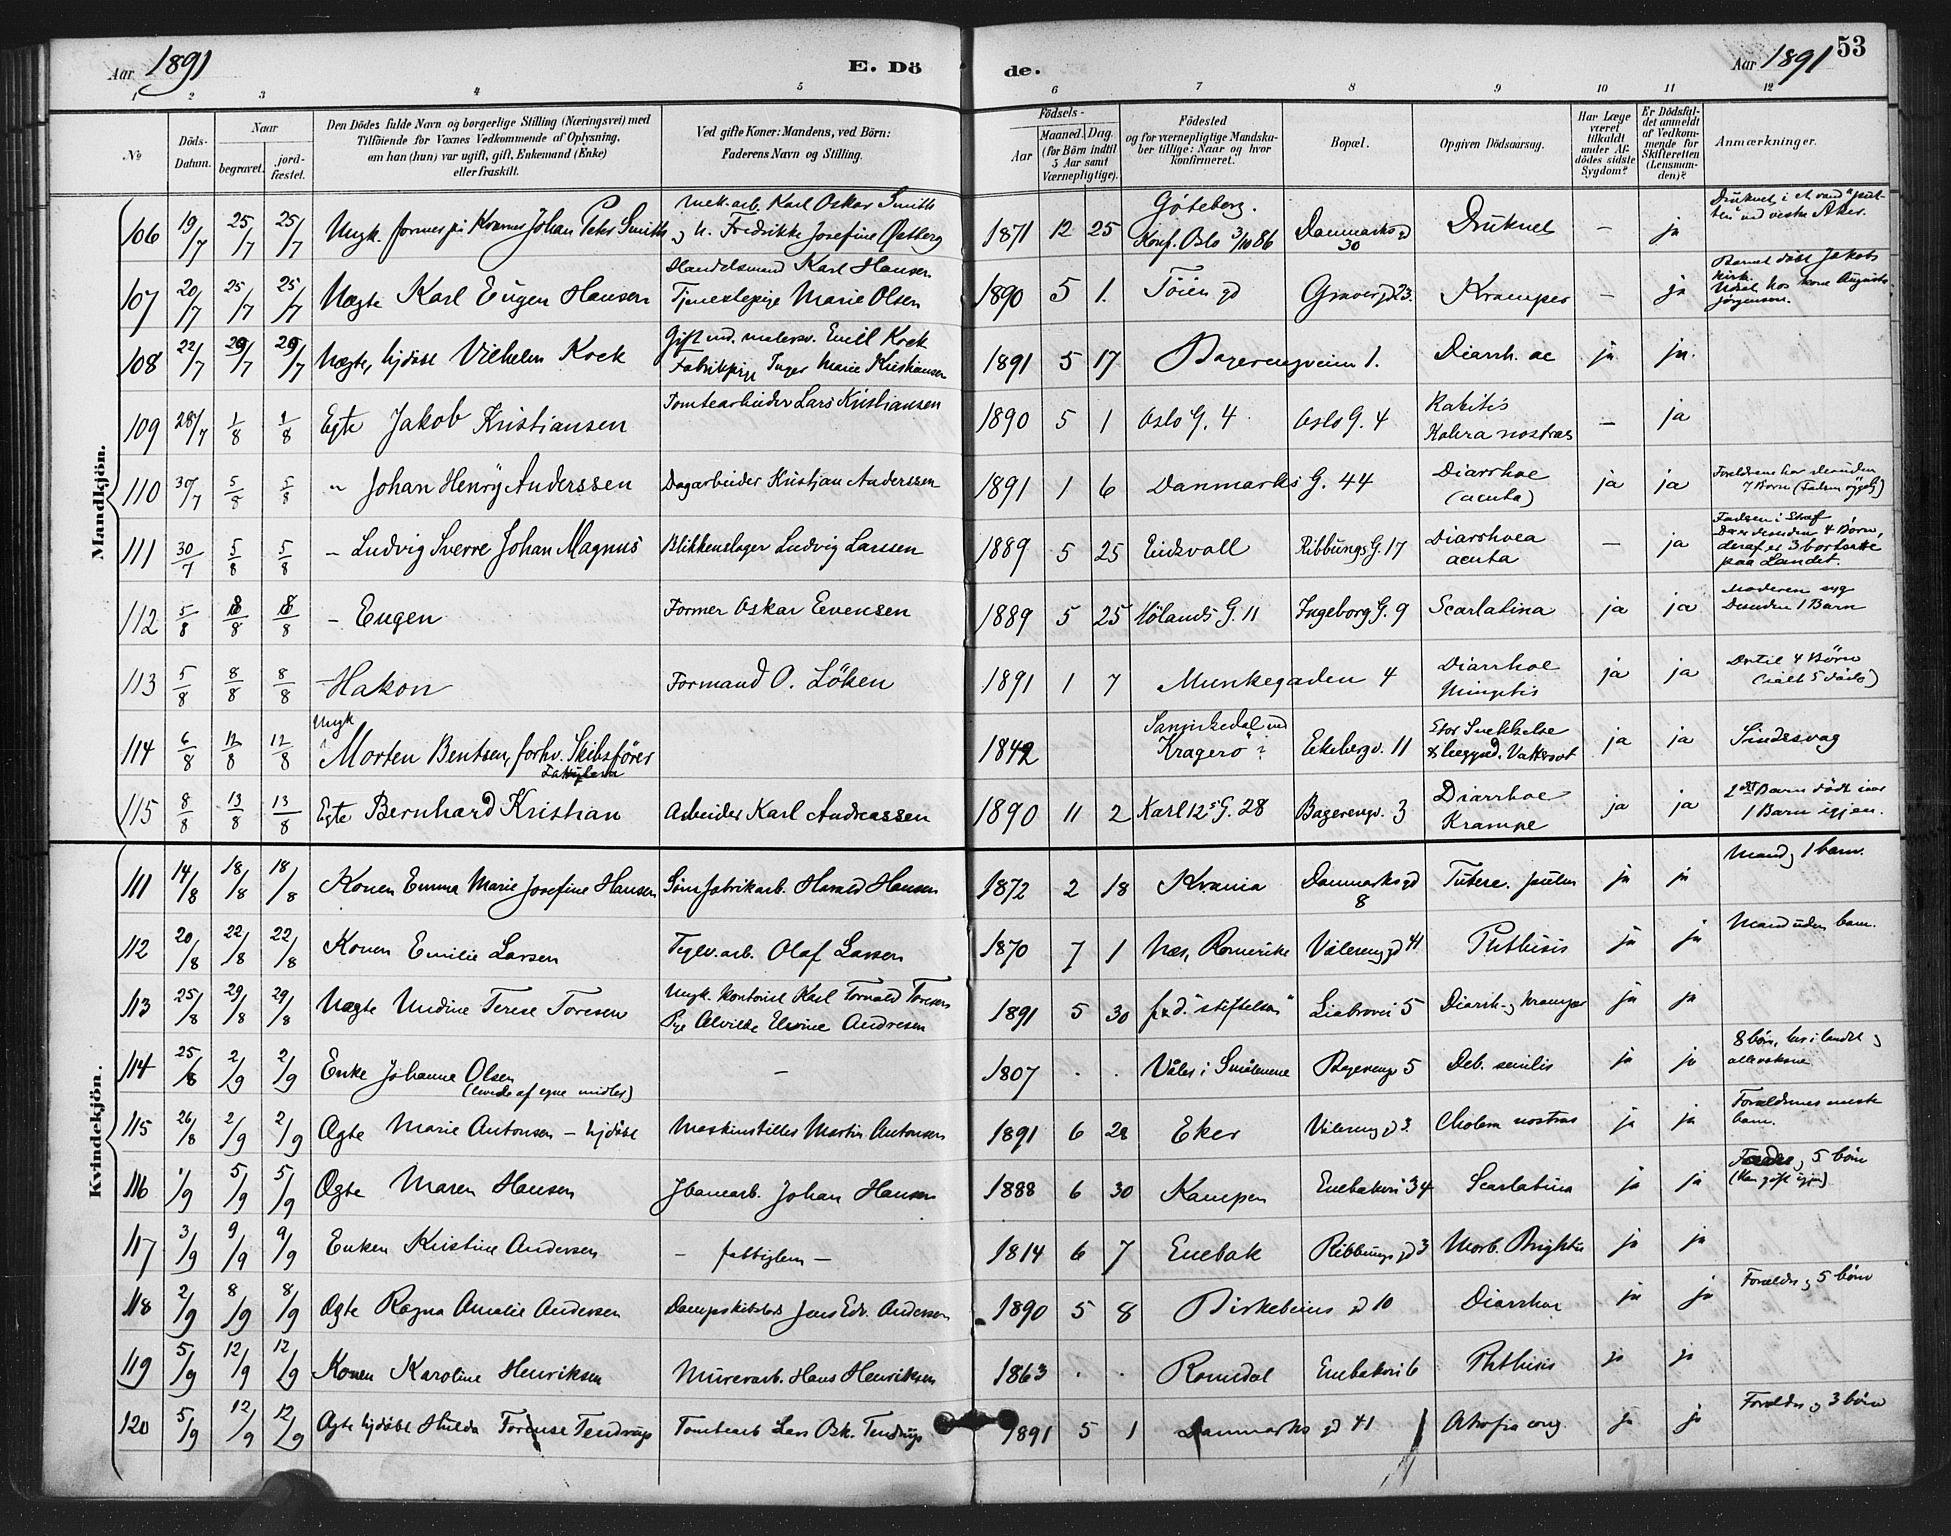 Aar 1891 E. Döde. Aar 1891 53
1 2 3 4 5 6 7 8 9 10 11 12
№ Döds-Datum. Naar begravet. jord-fæstet. Den Dödes fulde Navn og borgerlige Stilling (Næringsvei) med Tilföiende for Voxnes Vedkommende af Oplysning, om han (hun) var ugift, gift, Enkemand (Enke) eller fraskilt. Ved gifte Koner: Mandens, ved Börn: Faderens Navn og Stilling. Födsels- Aar Maaned. Dag. (for Börn indtil 5 Aar samt Værnepligtige). Födested og for værnepligtige Mandskaber tillige: Naar og hvor konfirmeret. Bopæl. Opgiven Dödsaarsag. Har Læge været tilkaldt under Afdödes sidste Sygdom? Er Dödsfaldet anmeldt af Vedkommende for Skifteretten (Lensmanden)? Anmærkninger.
Mandkjön.
106 19/7 25/7 25/7 Ungk. Johan Peter Smith Karl Oskar Smith og h. Fredrikke Josefine Østberg 1871 12 25 Göteborg. Konf. Oslo 3/10 86 Danmarksgd 30 Druknet — ja
107 20/7 25/7 25/7 Uægte Karl Eugen Hansen Handelsmand Karl Hansen Tjenestepige Marie Olsen 1890 5 1. Töiengd Gravergd 23. Kramper — ja Barnet döbt Jakobs kirk. hos kone Augusta Jørgensen.
108 22/7 29/7 29/7 Uægte, hjdöbt Vilhelm Kock Gift Emil Kock Fabrikpige Inger Marie Kristiansen 1891 5 17 Bagerengveien 1. Diarrh. ac ja ja.
109 28/7 1/8 1/8 Egte Jakob Kristiansen Tomtearbeider Lars Kristiansen 1890 5 1 Oslo G. 4 Oslo G. 4 Rakitis Kolera nostras — ja
110 30/7 5/8 5/8 " Johan Henrÿ Anderssen Dagarbeider Kristjan Anderssen 1891 1 6 Danmarks G. 44 Diarrhoe (acuta) ja ja Foreldrene har desuden 7 Born
111 30/7 5/8 5/8 — Ludvig Sverre Johan Magnus Blikkenslager Ludvig Larssen 1889 5 25 Eidsvoll Ribbungs G. 17 Diarrhoea acuta — ja Faderen i Straf desuden 4 Börn, deraf er 3 bortsatte paa Landet.
112 5/8 8/8 8/8 — Eugen Former Oskar Evensen 1889 5 25 Hölands G. 11 Ingeborg G. 9 Scarlatina ja ja Moderen syg Desuden 1 Barn
113 5/8 8/8 8/8 — Hakon Formand O. Löken 1891 1 7 Munkegaden 4 Diarrhoe ja ja Dertil 4 Börn
114 6/8 12/8 12/8 Ungk Morten Bentsen, forhv. Skibsförer Fattiglem 1842 Kragerö? Ekebergv. 11 Stor Svækkelse ja ja Sindssvag
115 8/8 13/8 13/8 Egte Bernhard Kristian Arbeider Karl Andreassen 1890 11 2 Karl 12s G. 28 Bagerengv. 3 Diarrhoe Krampe ja ja 2det Barn dödt iaar 1 Barn igjen.
Kvindekjön.
111 14/8 18/8 18/8 Konen Emma Marie Josefine Hansen Sömfabrikarb. Harald Hansen 1872 2 18 Krania Danmarksgd 8 Tuberc. pulm ja ja Mand og 1 barn.
112 20/8 22/8 22/8 Konen Emilie Larsen Teglv.arb. Olaf Larsen 1870 7 1 Næs, Romerike Vålerenggd 41 Phthisis ja ja Mand uden barn.
113 25/8 29/8 29/8 Uægte Undine Terese Toresen Ungk. kontorist Karl Toresen Pige Alvilde Andresen 1891 5 30 "stiftelsen" Liabrovei 5 Diarrh. og kramper ja ja
114 25/8 2/9 2/9 Enke Johanne Olsen (levede af egne midler) — 1807 . . Våler i Smålenene Bagerengv 5 Deb. senilis ja ja
115 26/8 2/9 2/9 Ægte Marie Antonsen — hjdöbt Maskinstiller Martin Antonsen 1891 6 28 Eker Vålerenggd 3. Cholera nostras ja ja Forældrenes eneste barn.
116 1/9 5/9 5/9 Ægte Maren Hansen Jbanearb. Johan Hansen 1888 6 30 Kampen Enebakvei 34 Scarlatina ja ja 5 börn
117 3/9 9/9 9/9 Enken Kristine Andersen — fattiglem — 1814 6 7 Enebak Ribbungsgd 3 Morb. Brightii ja ja
118 2/9 8/9 8/9 Ægte Ragna Amalie Andersen Jens Edv. Andersen 1890 5 8 Birkebeinsgd 10 Diarrhoe ja ja Forældre og 5 börn
119 5/9 12/9 12/9 Konen Karoline Henriksen Murerarb. Hans Henriksen 1863 . . Romedal Enebakvei 6 Phthisis ja ja
120 5/9 12/9 12/9 Ægte hjdöbt Hilda Tendrup Tomtearb Lars Osk. Tendrup 1891 5 1 Danmarksgd 41 Atrofia cong. ja ja Forældre og 3 börn